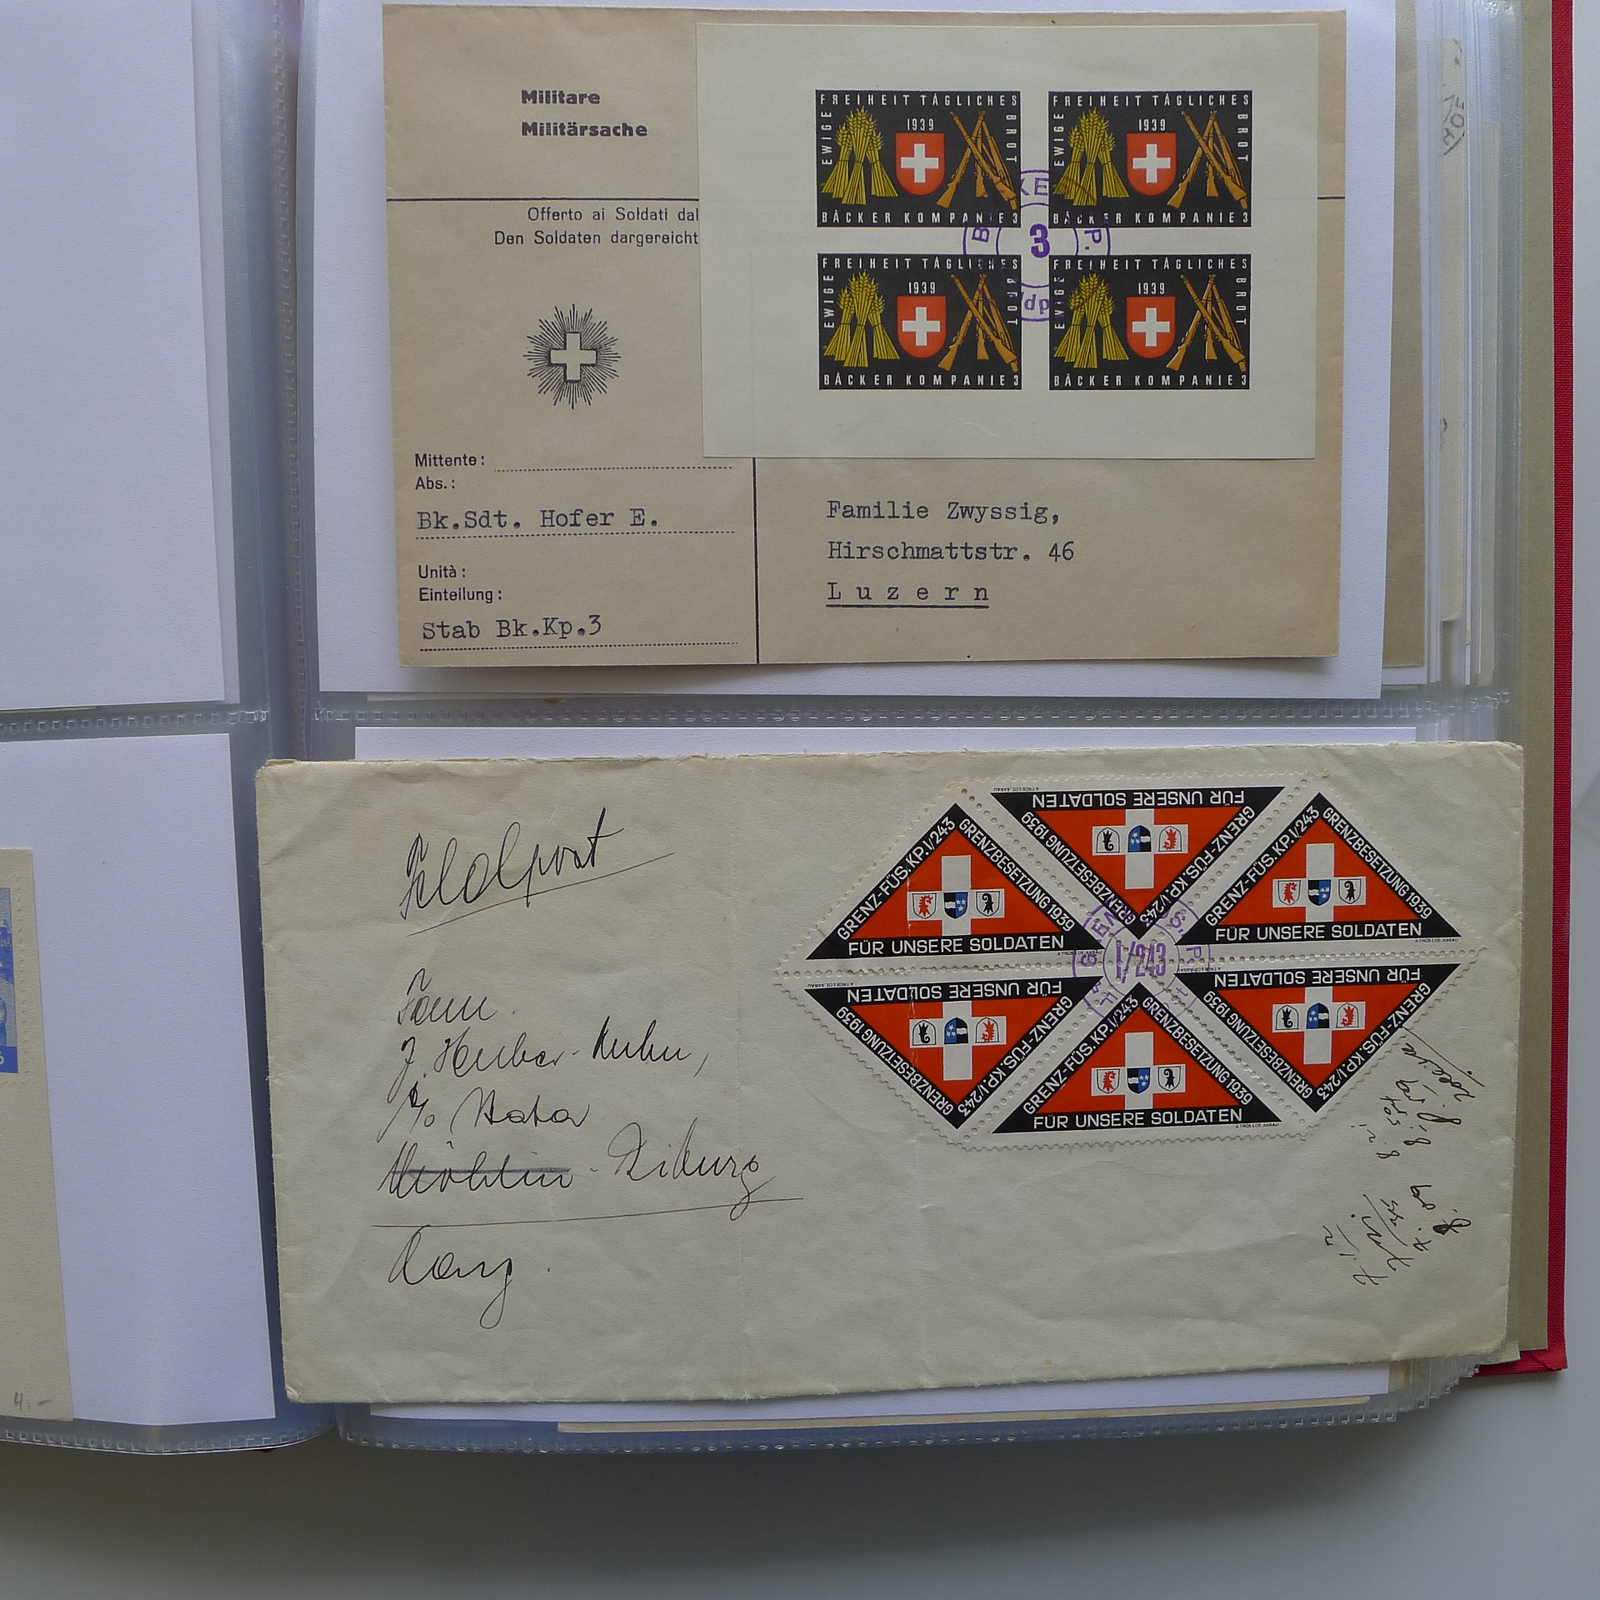 Militare
Militärsache
Offerto ai Soldati dal
Den Soldaten dargereicht
Mittente:
Abs.:
Bk.Sdt. Hofer E.
Unità:
Einteilung:
Stab Bk.Kp.3
FREIHEIT TÄGLICHES
EWIGE
1939
BROT
BÄCKER KOMPANIE 3
FREIHEIT TÄGLICHES
EWIGE
1939
BROT
BÄCKER KOMPANIE 3
3
FREIHEIT TÄGLICHES
EWIGE
1939
BROT
BÄCKER KOMPANIE 3
FREIHEIT TÄGLICHES
EWIGE
1939
BROT
BÄCKER KOMPANIE 3
Familie Zwyssig,
Hirschmattstr. 46
Luzern
Feldpost
J. Huber-Kuhn,
GRENZ-FÜS.KP.I/243
GRENZBESETZUNG 1939
FÜR UNSERE SOLDATEN
GRENZ-FÜS.KP.I/243
GRENZBESETZUNG 1939
FÜR UNSERE SOLDATEN
GRENZ-FÜS.KP.I/243
GRENZBESETZUNG 1939
FÜR UNSERE SOLDATEN
I/243
GRENZ-FÜS.KP.I/243
GRENZBESETZUNG 1939
FÜR UNSERE SOLDATEN
GRENZ-FÜS.KP.I/243
GRENZBESETZUNG 1939
FÜR UNSERE SOLDATEN
GRENZ-FÜS.KP.I/243
GRENZBESETZUNG 1939
FÜR UNSERE SOLDATEN
4.-